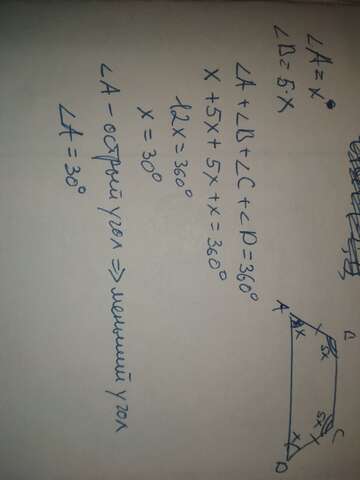 ∠A = x°
∠B = 5·x
∠A + ∠B + ∠C + ∠D = 360°
x + 5x + 5x + x = 360°
12x = 360°
x = 30°
∠A – острый угол ⇒ меньший угол
∠A = 30°
B
C
5x
5x
A
x
x
D